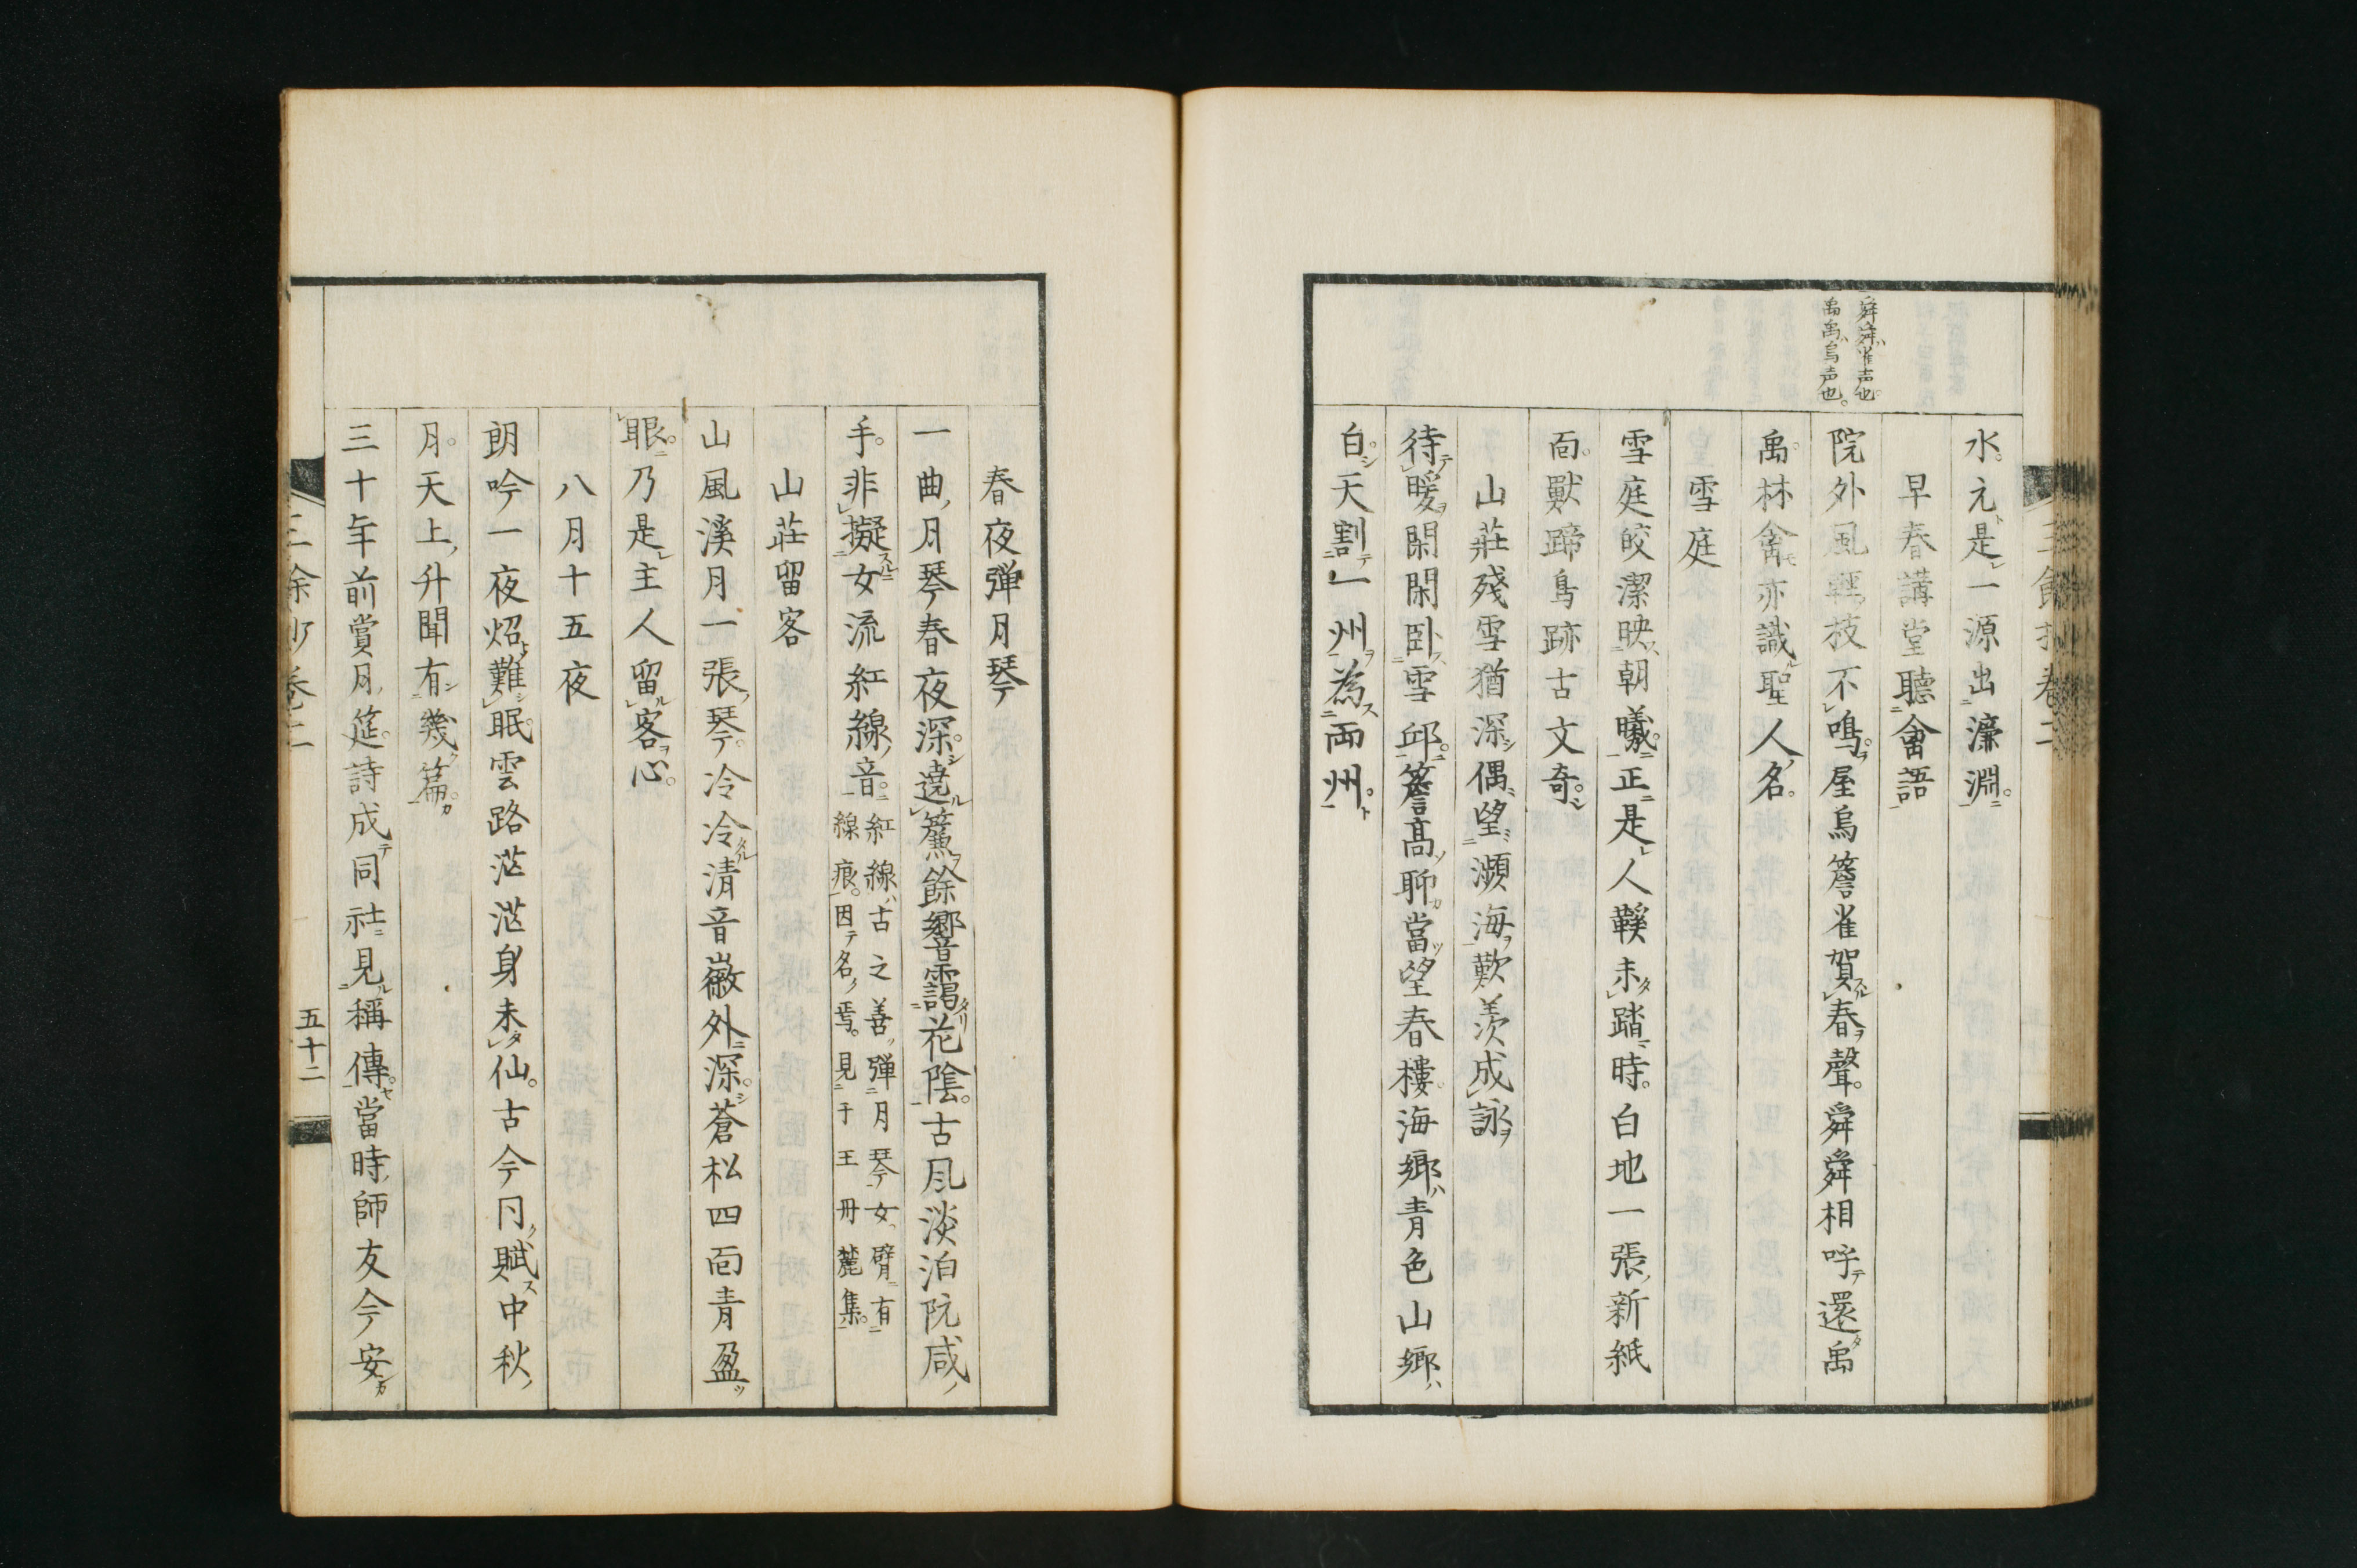 舜舜雀声也
禹禹烏声也
水元是一源出濂淵
早春講堂聽禽語
院外風輕枝不鳴屋烏簷雀賀春聲舜舜相呼還禹
禹林禽亦識聖人名
雪庭
雪庭皎潔映朝曦正是人鞵未踏時白地一張新紙
面獸蹄鳥跡古文奇
山莊殘雪猶深偶望瀕海歎羨成詠
待暖閑閑臥雪邱簷高聊當望春樓海鄉青色山鄉
白天割一州為両州
春夜彈月琴
一曲月琴春夜深遶簾餘響靄花陰古風淡泊阮咸
手非擬女流紅線音
紅線古之善彈月琴女臂有
線痕因名焉見于王冊麓集
山莊留客
山風溪月一張琴冷冷清音徽外深蒼松四面青盈
眼乃是主人留客心
八月十五夜
朗吟一夜炤難眠雲路茫茫身未仙古今月賦中秋
月天上升聞有幾篇
三十年前賞月筵詩成同社見稱傳當時師友今安
五十二